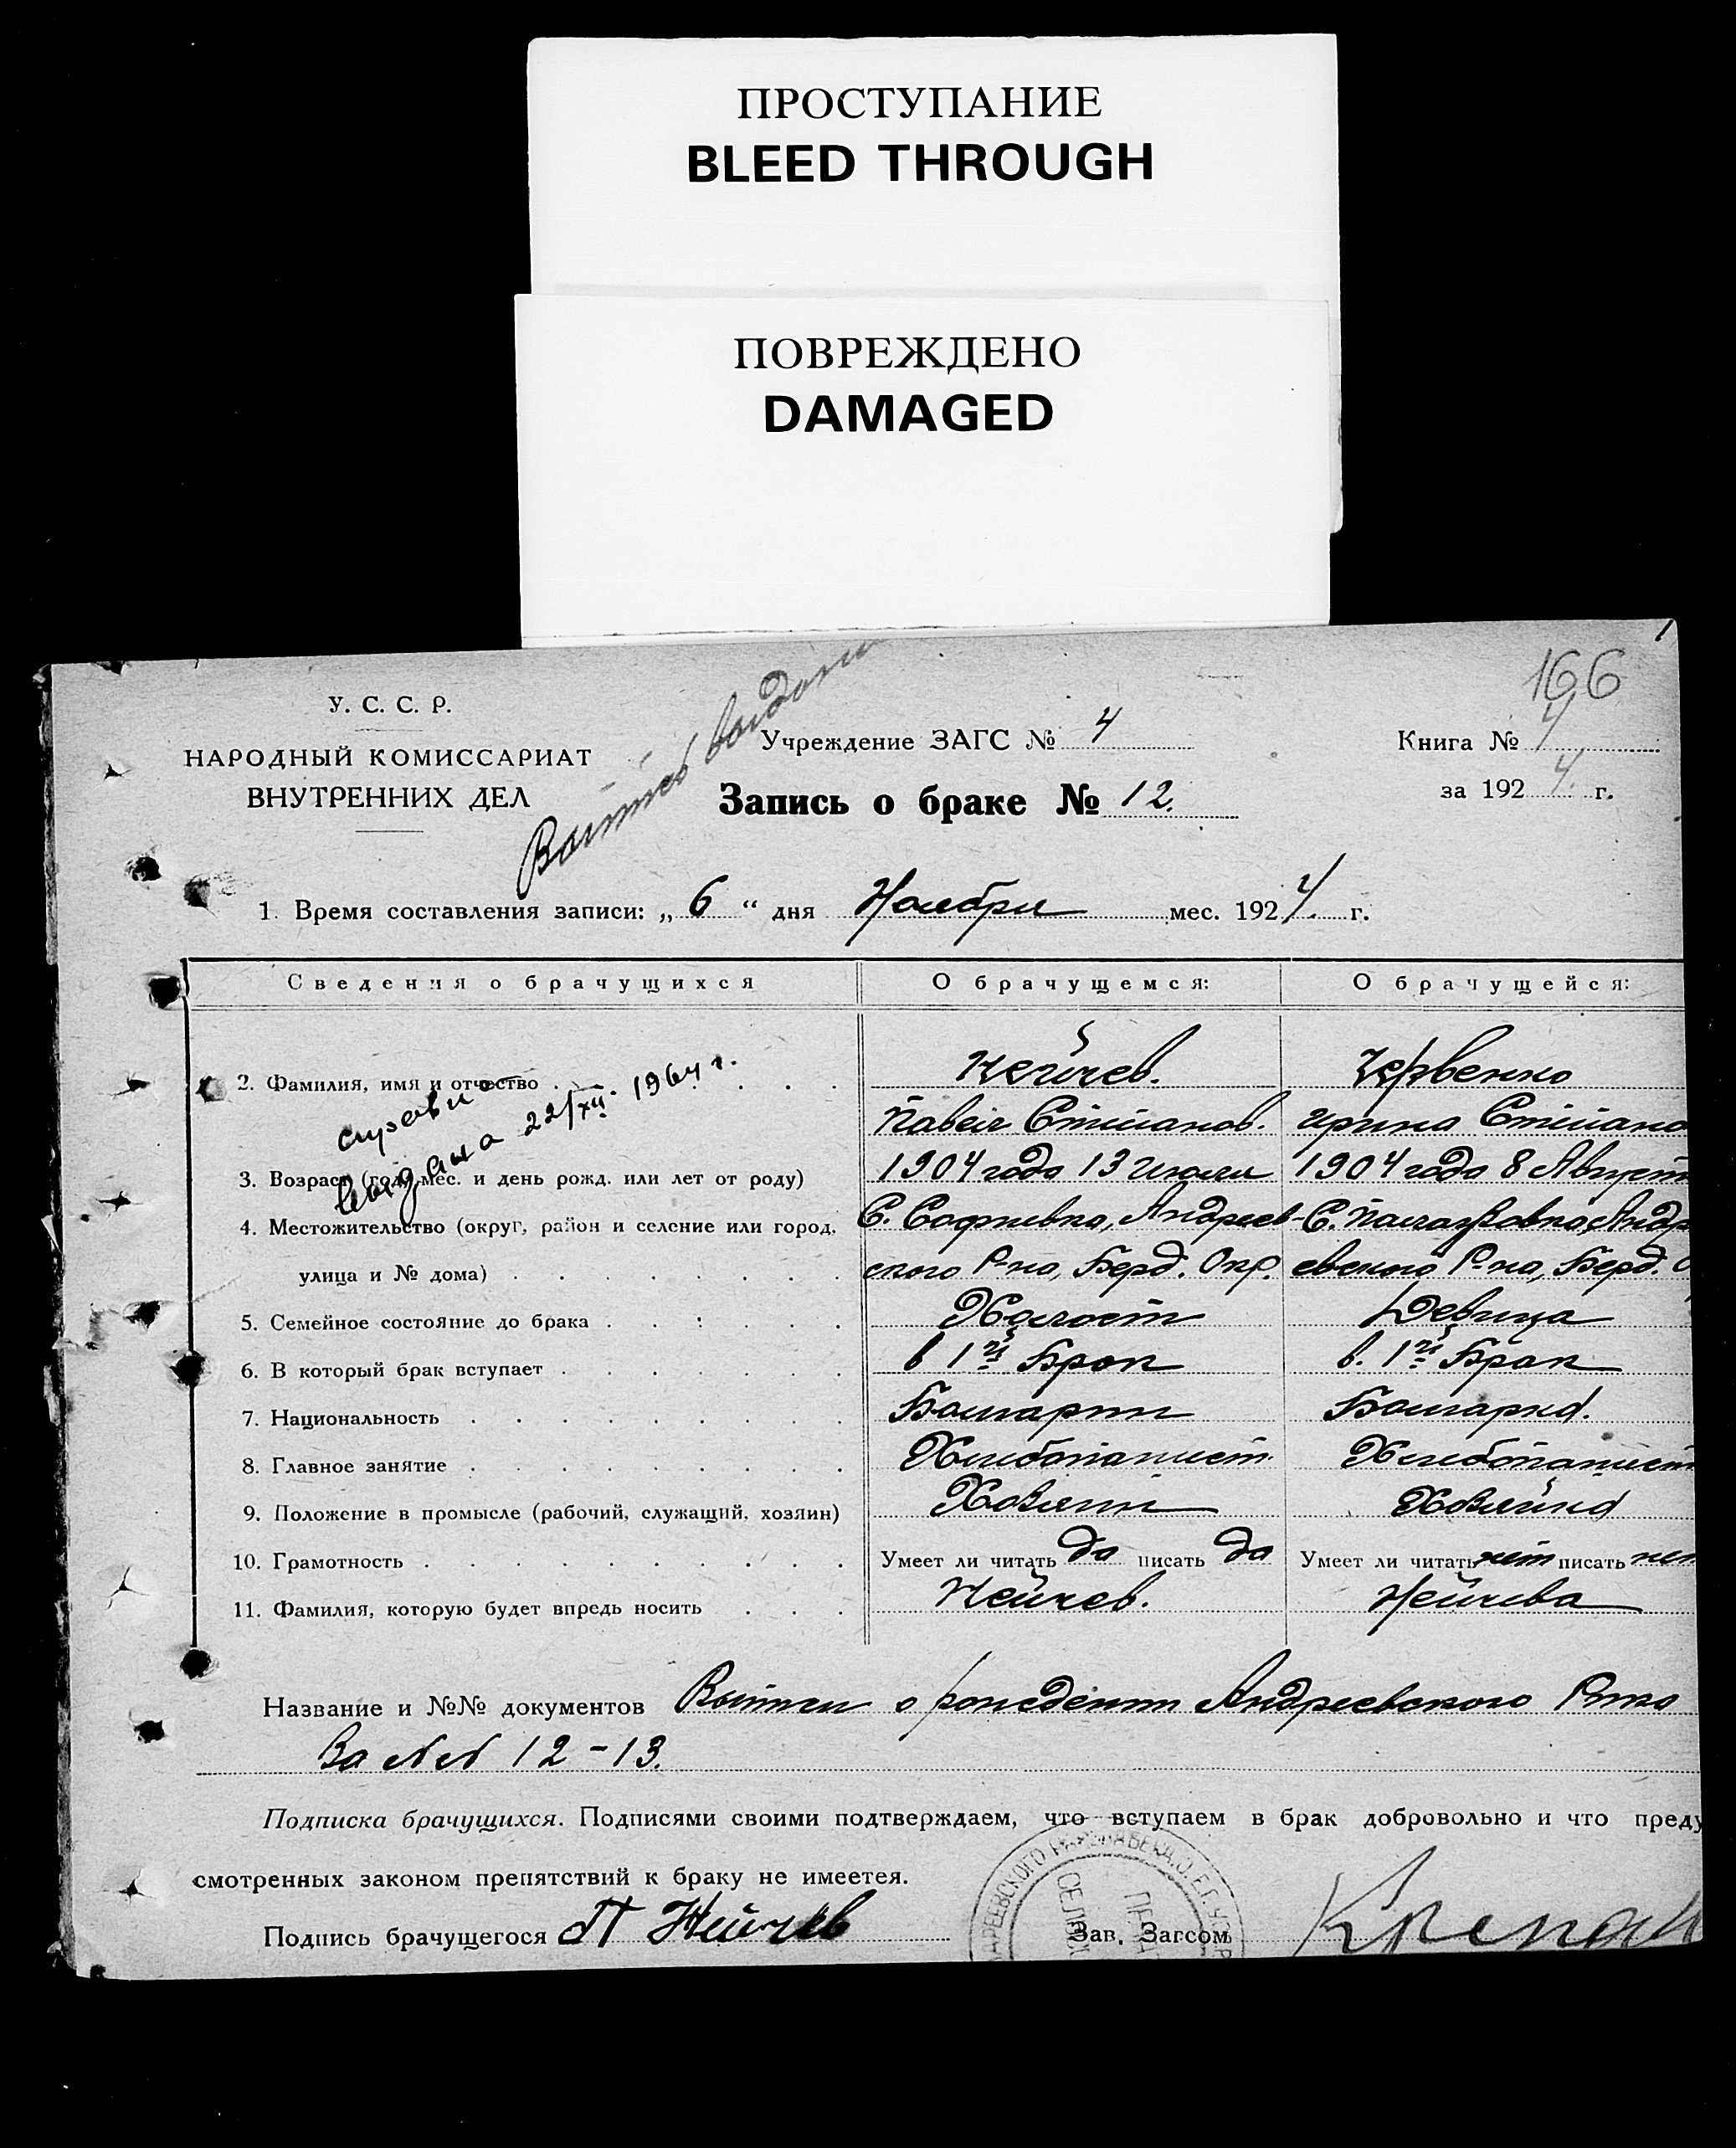 ПРОСТУПАНИЕ
BLEED THROUGH
ПОВРЕЖДЕНО
DAMAGED
166
У. С. С. Р.
НАРОДНЫЙ КОМИССАРИАТ
ВНУТРЕННИХ ДЕЛ
Учреждение ЗАГС № 4
Книга № 4
Запись о браке № 12.
за 1924. г.
1. Время составления записи: „ 6 “ дня Ноября мес. 1924. г.
Сведения о брачущихся О брачущемся: О брачущейся:
справка
выдана 22/XII. 1964 г.
2. Фамилия, имя и отчество Нейчев. Червенко
Павел Степанов. Ирина Степано
3. Возраст (год, мес. и день рожд. или лет от роду) 1904 года 13 Июля 1904 года 8 Август
4. Местожительство (округ, район и селение или город, С. Софиевка, Андреев- С. Палаузовка, Андре
улица и № дома) ского Р-на, Берд. Окр. евского Р-на, Берд. О
5. Семейное состояние до брака Холост Девица
6. В который брак вступает в 1й Брак в. 1й Брак
7. Национальность Болгарин Болгарка.
8. Главное занятие Хлебопашест. Хлебопашест
9. Положение в промысле (рабочий, служащий, хозяин) Хозяин Хозяйка
10. Грамотность Умеет ли читать да писать да Умеет ли читать нет писать нет
11. Фамилия, которую будет впредь носить Нейчев. Нейчева
Название и №№ документов о рождении Андреевского Рика
За №№ 12-13.
Подписка брачущихся. Подписями своими подтверждаем, что вступаем в брак добровольно и что преду
смотренных законом препятствий к браку не имеется.
Подпись брачущегося П Нейчев Зав. Загсом